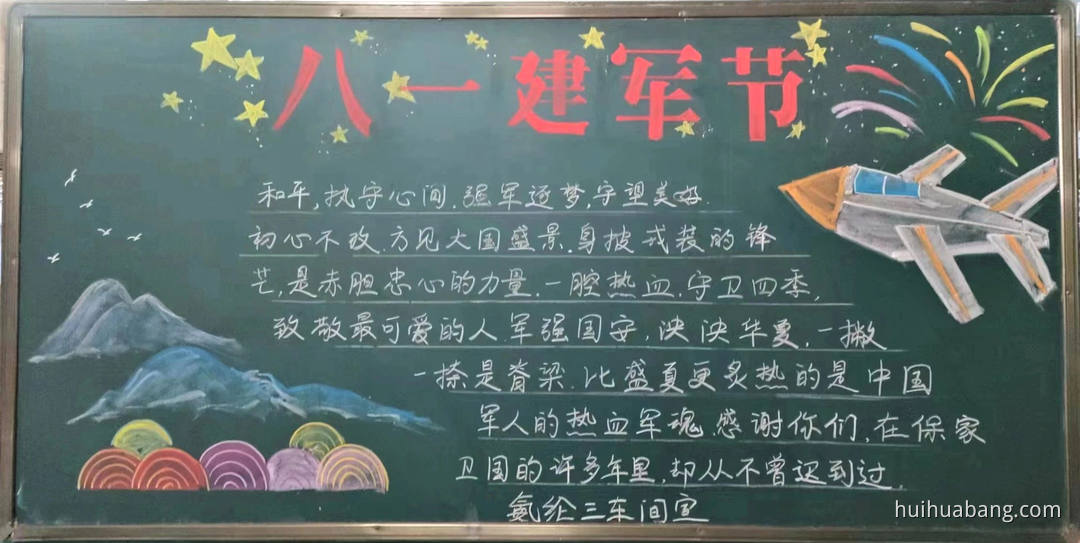 八一建军节
和平,执守心间.强军逐梦,守望美好.
初心不改.方见大国盛景.身披戎装的锋
芒,是赤胆忠心的力量.一腔热血.守卫四季,
致敬最可爱的人军强国安,泱泱华夏,一撇
一捺是脊梁.比盛夏更炙热的是中国
军人的热血军魂.感谢你们,在保家
卫国的许多年里,却从不曾迟到过.
氨纶三车间宣
huihuabang.com